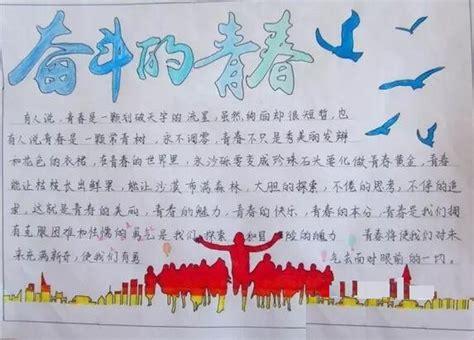 奋斗的青春
有人说，青春是一颗划破天宇的流星，虽然绚丽却很短暂，也
有人说青春是一颗常青树，永不凋零，青春不只是秀美丽发辫
和花色的衣裙，在青春的世界里，永沙砾要变成珍珠石头要化做青春黄金，青春
能让枯枝长出鲜果，能让沙漠布满森林，大胆的探索，不倦的思考，不停的追
求，这就是青春的美丽，青春的魅力，青春的快乐，青春的本分，青春是我们拥
有克服困难和怯懦的勇气是我们探索 和冒险的魄力 青春将使我们对未
来充满新奇，使我们有勇 气去面对眼前的一切。